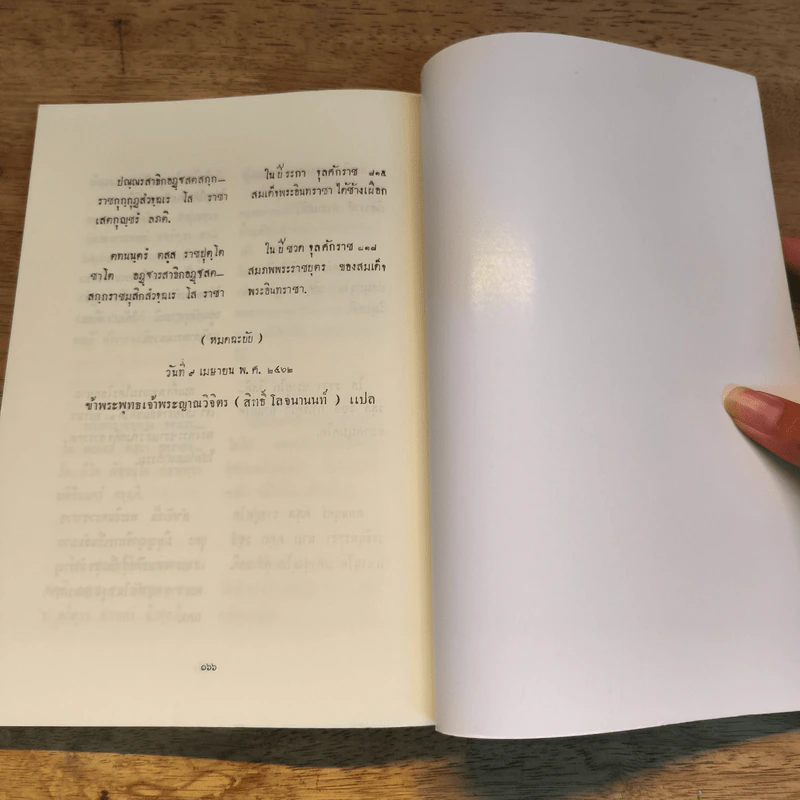 ปณฺณรสาธิกอฏฺฐสตสกฺก–
ราชกุกฺกุฏสํวจฺฉเร โส ราชา
เสตกุญฺชรํ ลภติ.
ในปีระกา จุลศักราช ๘๑๕
สมเด็จพระอินทราชา ได้ช้างเผือก
ตทนนฺตรํ ตสฺส ราชปุตฺโต
ชาโต อฏฺฐารสาธิกอฏฺฐสต–
สกฺกราชมุสิกสํวจฺฉเร โส ราชา
ในปีชวด จุลศักราช ๘๑๘
สมภพพระราชบุตร ของสมเด็จ
พระอินทราชา.
( หมดฉะบับ )
วันที่ ๙ เมษายน พ. ศ. ๒๔๖๒
ข้าพระพุทธเจ้าพระญาณวิจิตร ( สิทธิ์ โลจนานนท์ ) แปล
๑๖๖